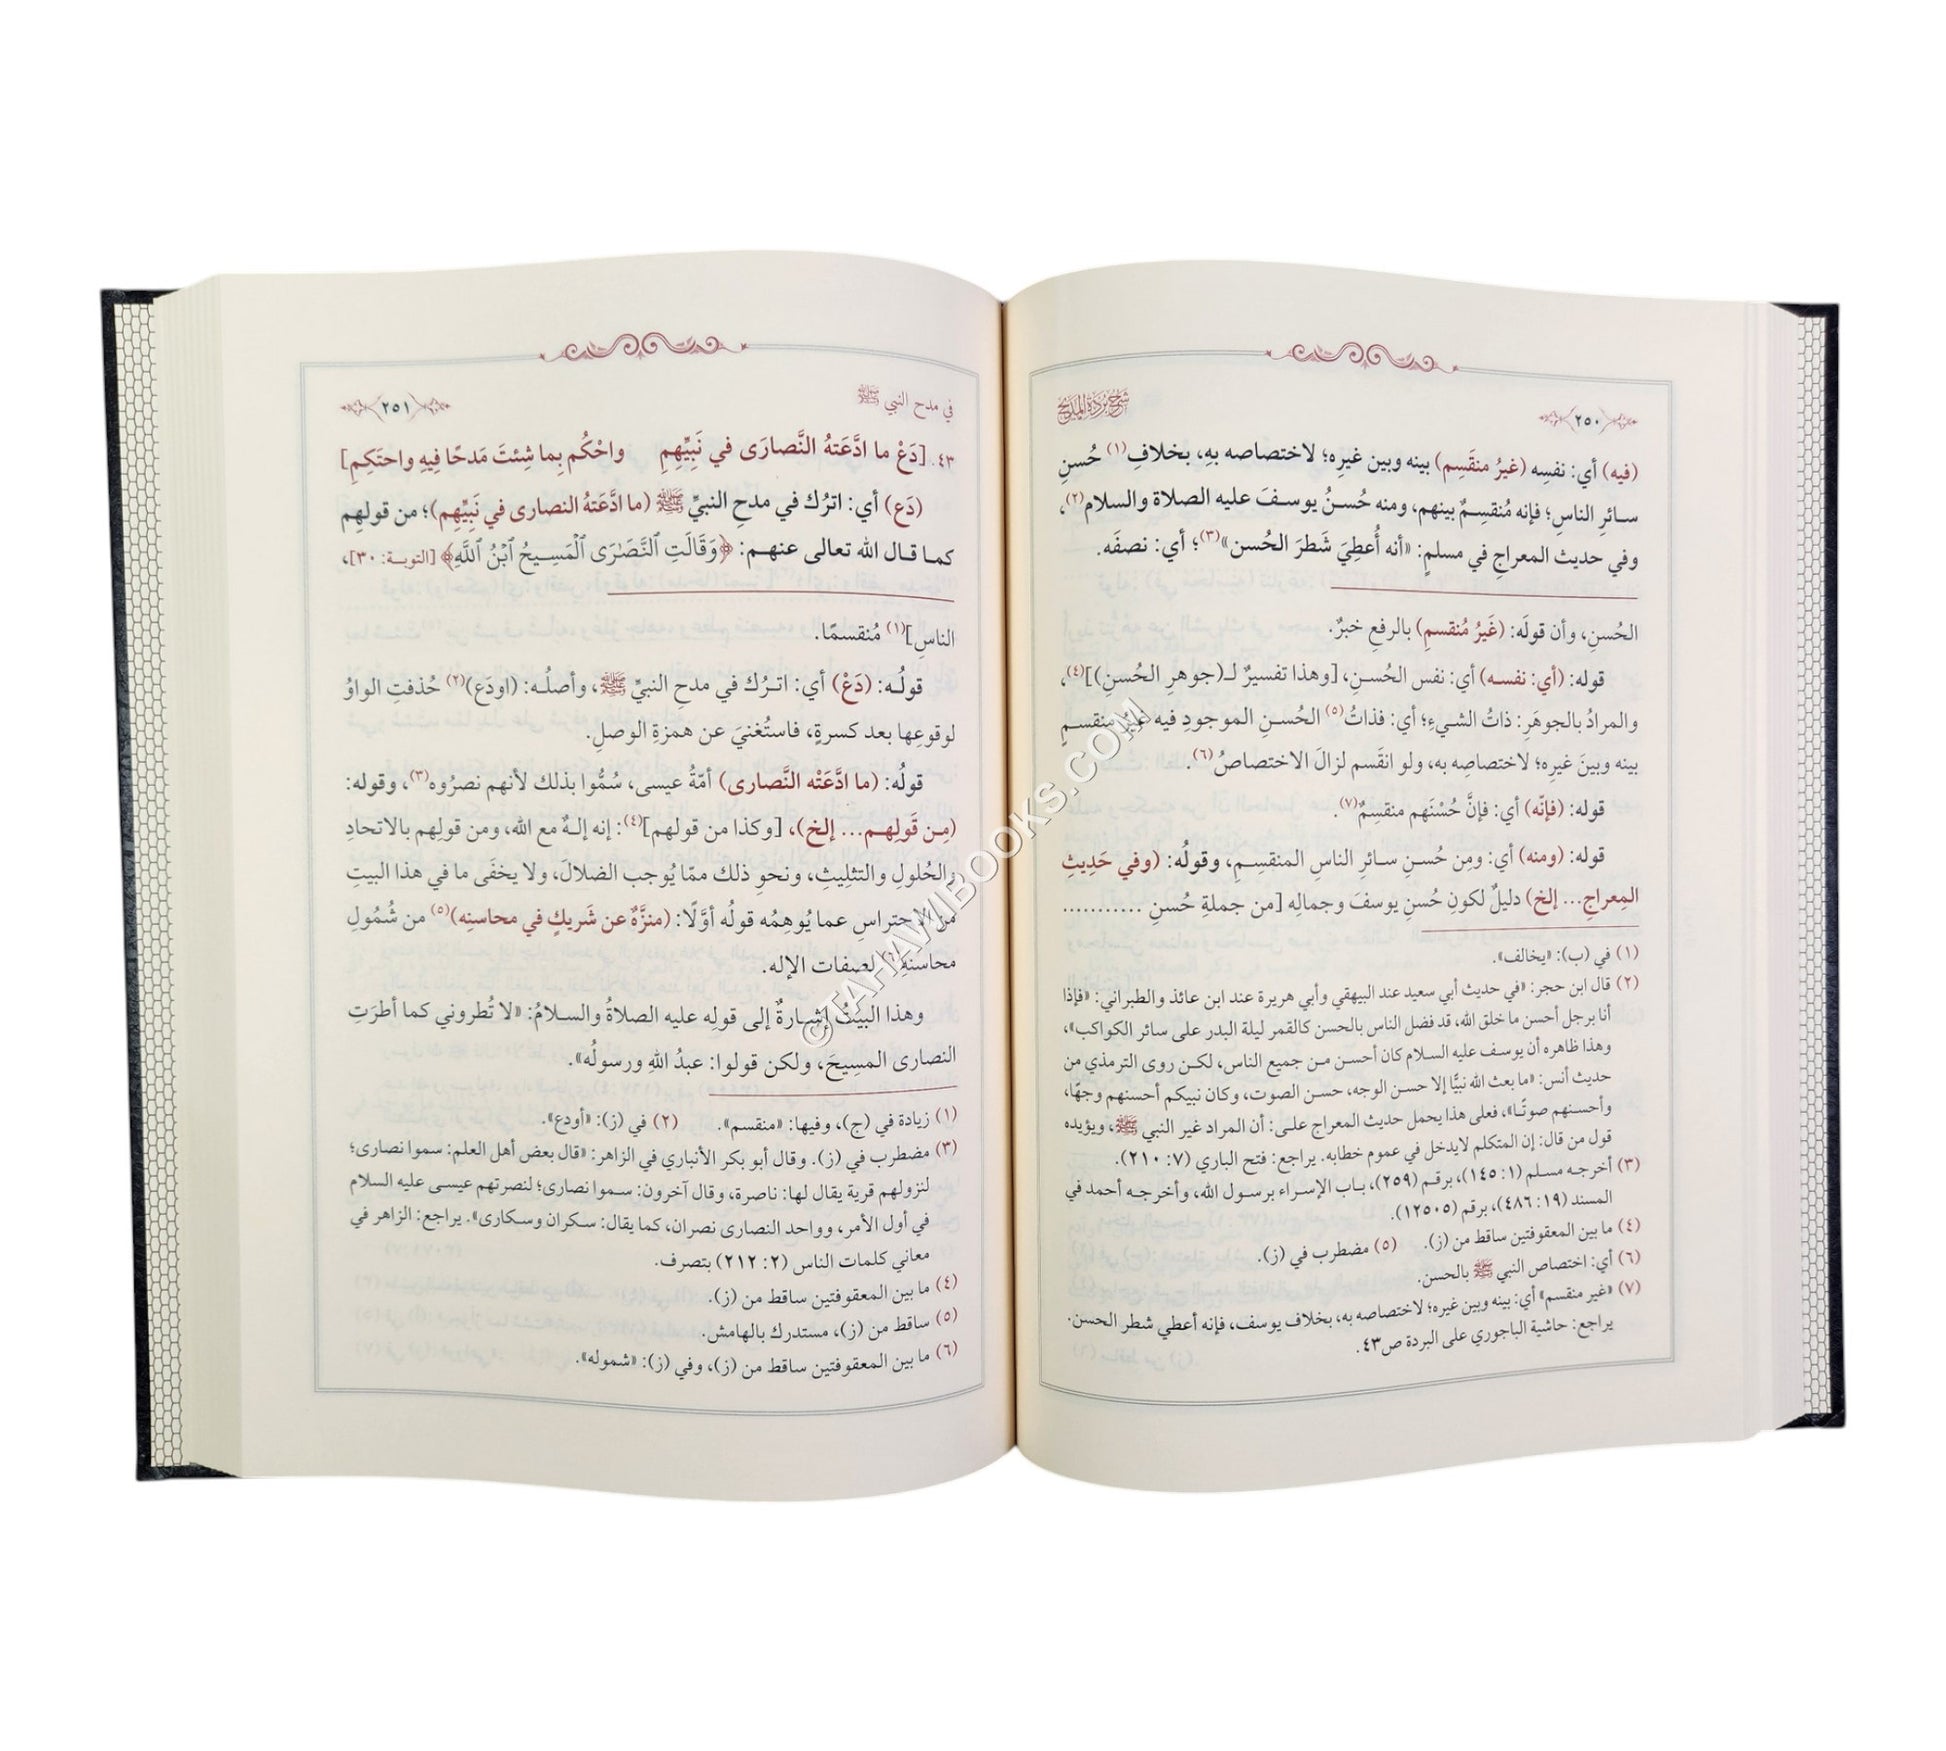 ٢٥٠
شرح بردة المديح
(فيه) أي: نفسِه (غيرُ منقَسِم) بينه وبين غيرِه؛ لاختصاصه بهِ، بخلافِ(١) حُسنِ
سـائرِ الناسِ؛ فإنه مُنقسِـمٌ بينهم، ومنه حُسـنُ يوسـفَ عليه الصلاة والسلام(٢)،
وفي حديث المعراجِ في مسلمٍ: «أنه أُعطِيَ شَطرَ الحُسن»(٣)؛ أي: نصفَه.
الحُسنِ، وأن قولَه: (غَيرُ مُنقسمِ) بالرفعِ خبرٌ.
قوله: (أي: نفسـه) أي: نفس الحُسـنِ، [وهذا تفسيرٌ لـ(جوهرِ الحُسنِ)](٤)،
والمرادُ بالجوهَرِ: ذاتُ الشـيءِ؛ أي: فذاتُ(٥) الحُسـنِ الموجودِ فيه غيرُ منقسـمٍ
بينه وبينَ غيرِه؛ لاختصاصِه به، ولو انقَسم لزالَ الاختصاصُ(٦).
قوله: (فإنّه) أي: فإنَّ حُسْنَهم منقسِمٌ(٧).
قوله: (ومنه) أي: ومِن حُسـنِ سـائرِ الناسِ المنقسِـمِ، وقولُه: (وفي حَدِيثِ
المِعراجِ... إلخ) دليلٌ لكونِ حُسنِ يوسفَ وجمالِه [من جملةِ حُسنِ ...........
(١) في (ب): «يخالف».
(٢) قال ابن حجر: «في حديث أبي سعيد عند البيهقي وأبي هريرة عند ابن عائذ والطبراني: «فإذا
أنا برجل أحسن ما خلق الله، قد فضل الناس بالحسن كالقمر ليلة البدر على سائر الكواكب»،
وهذا ظاهره أن يوسف عليه السلام كان أحسن من جميع الناس، لكـن روى الترمذي من
حديث أنس: «ما بعث الله نبيًّا إلا حسن الوجه، حسن الصوت، وكان نبيكم أحسنهم وجهًا،
وأحسنهم صوتًا»، فعلى هذا يحمل حديث المعراج علـى: أن المراد غير النبي ﷺ، ويؤيده
قول من قال: إن المتكلم لا يدخل في عموم خطابه. يراجع: فتح الباري (٧: ٢١٠).
(٣) أخرجـه مسلم (١: ١٤٥)، برقـم (٢٥٩)، بـاب الإسراء برسـول الله، وأخرجـه أحمد في
المسند (١٩: ٤٨٦)، برقم (١٢٥٠٥).
(٤) ما بين المعقوفتين ساقط من (ز). (٥) مضطرب في (ز).
(٦) أي: اختصاص النبي ﷺ بالحسن.
(٧) «غير منقسم» أي: بينه وبين غيره؛ لاختصاصه به، بخلاف يوسف، فإنه أعطي شطر الحسن.
يراجع: حاشية الباجوري على البردة ص٤٣.
في مدح النبي ﷺ
٢٥١
٤٣. [دَعْ ما ادَّعَتهُ النَّصارَى في نَبِيِّهِمِ واحْكُم بِما شِئتَ مَدحًا فِيهِ واحتَكِمِ]
(دَع) أي: اترُك في مدحِ النبيِّ ﷺ (ما ادَّعَتهُ النصارى في نَبِيِّهِم)؛ من قولهِم
كمـا قـال الله تعالى عنهـم: ﴿وَقَالَتِ ٱلنَّصَٰرَى ٱلْمَسِـيحُ ٱبْنُ ٱللَّهِ﴾ [التوبـة: ٣٠]،
الناسِ](١) مُنقسمًا.
قولُـه: (دَعْ) أي: اتـرُك في مدحِ النبيِّ ﷺ، وأصلُـه: (اودَع)(٢) حُذفتِ الواوُ
لوقوعِها بعد كسرةٍ، فاستُغنيَ عن همزةِ الوصلِ.
قولُه: (ما ادَّعَتْه النَّصارى) أمّةُ عيسى، سُمُّوا بذلك لأنهم نصرُوه(٣)، وقوله:
(مِـن قَولِهـم... إلخ)، [وكذا من قولهم](٤): إنه إلـهٌ مع الله، ومن قولِهم بالاتحادِ
والحُلولِ والتثلِيثِ، ونحوِ ذلك ممّا يُوجب الضلالَ، ولا يخفَى ما في هذا البيتِ
من الاحتراسِ عما يُوهِمُه قولُه أوَّلًا: (منزَّهٌ عن شَريكٍ في محاسنِه)(٥) من شُمُولِ
محاسنهِ(٦) لصفات الإله.
وهذا البيتُ إشـارةٌ إلى قولِه عليه الصلاةُ والسـلامُ: «لا تُطروني كما أطرَتِ
النصارى المسِيحَ، ولكن قولوا: عبدُ اللهِ ورسولُه».
(١) زيادة في (ج)، وفيها: «منقسم». (٢) في (ز): «أودع».
(٣) مضطرب في (ز). وقال أبو بكر الأنباري في الزاهر: «قال بعض أهل العلم: سموا نصارى؛
لنزولهم قرية يقال لها: ناصرة، وقال آخرون: سـموا نصارى؛ لنصرتهم عيسـى عليه السلام
في أول الأمر، وواحد النصارى نصران، كما يقال: سكران وسكارى». يراجع: الزاهر في
معاني كلمات الناس (٢: ٢١٢) بتصرف.
(٤) ما بين المعقوفتين ساقط من (ز).
(٥) ساقط من (ز)، مستدرك بالهامش.
(٦) ما بين المعقوفتين ساقط من (ز)، وفي (ز): «شموله».
©TAHAWIBOOKS.COM